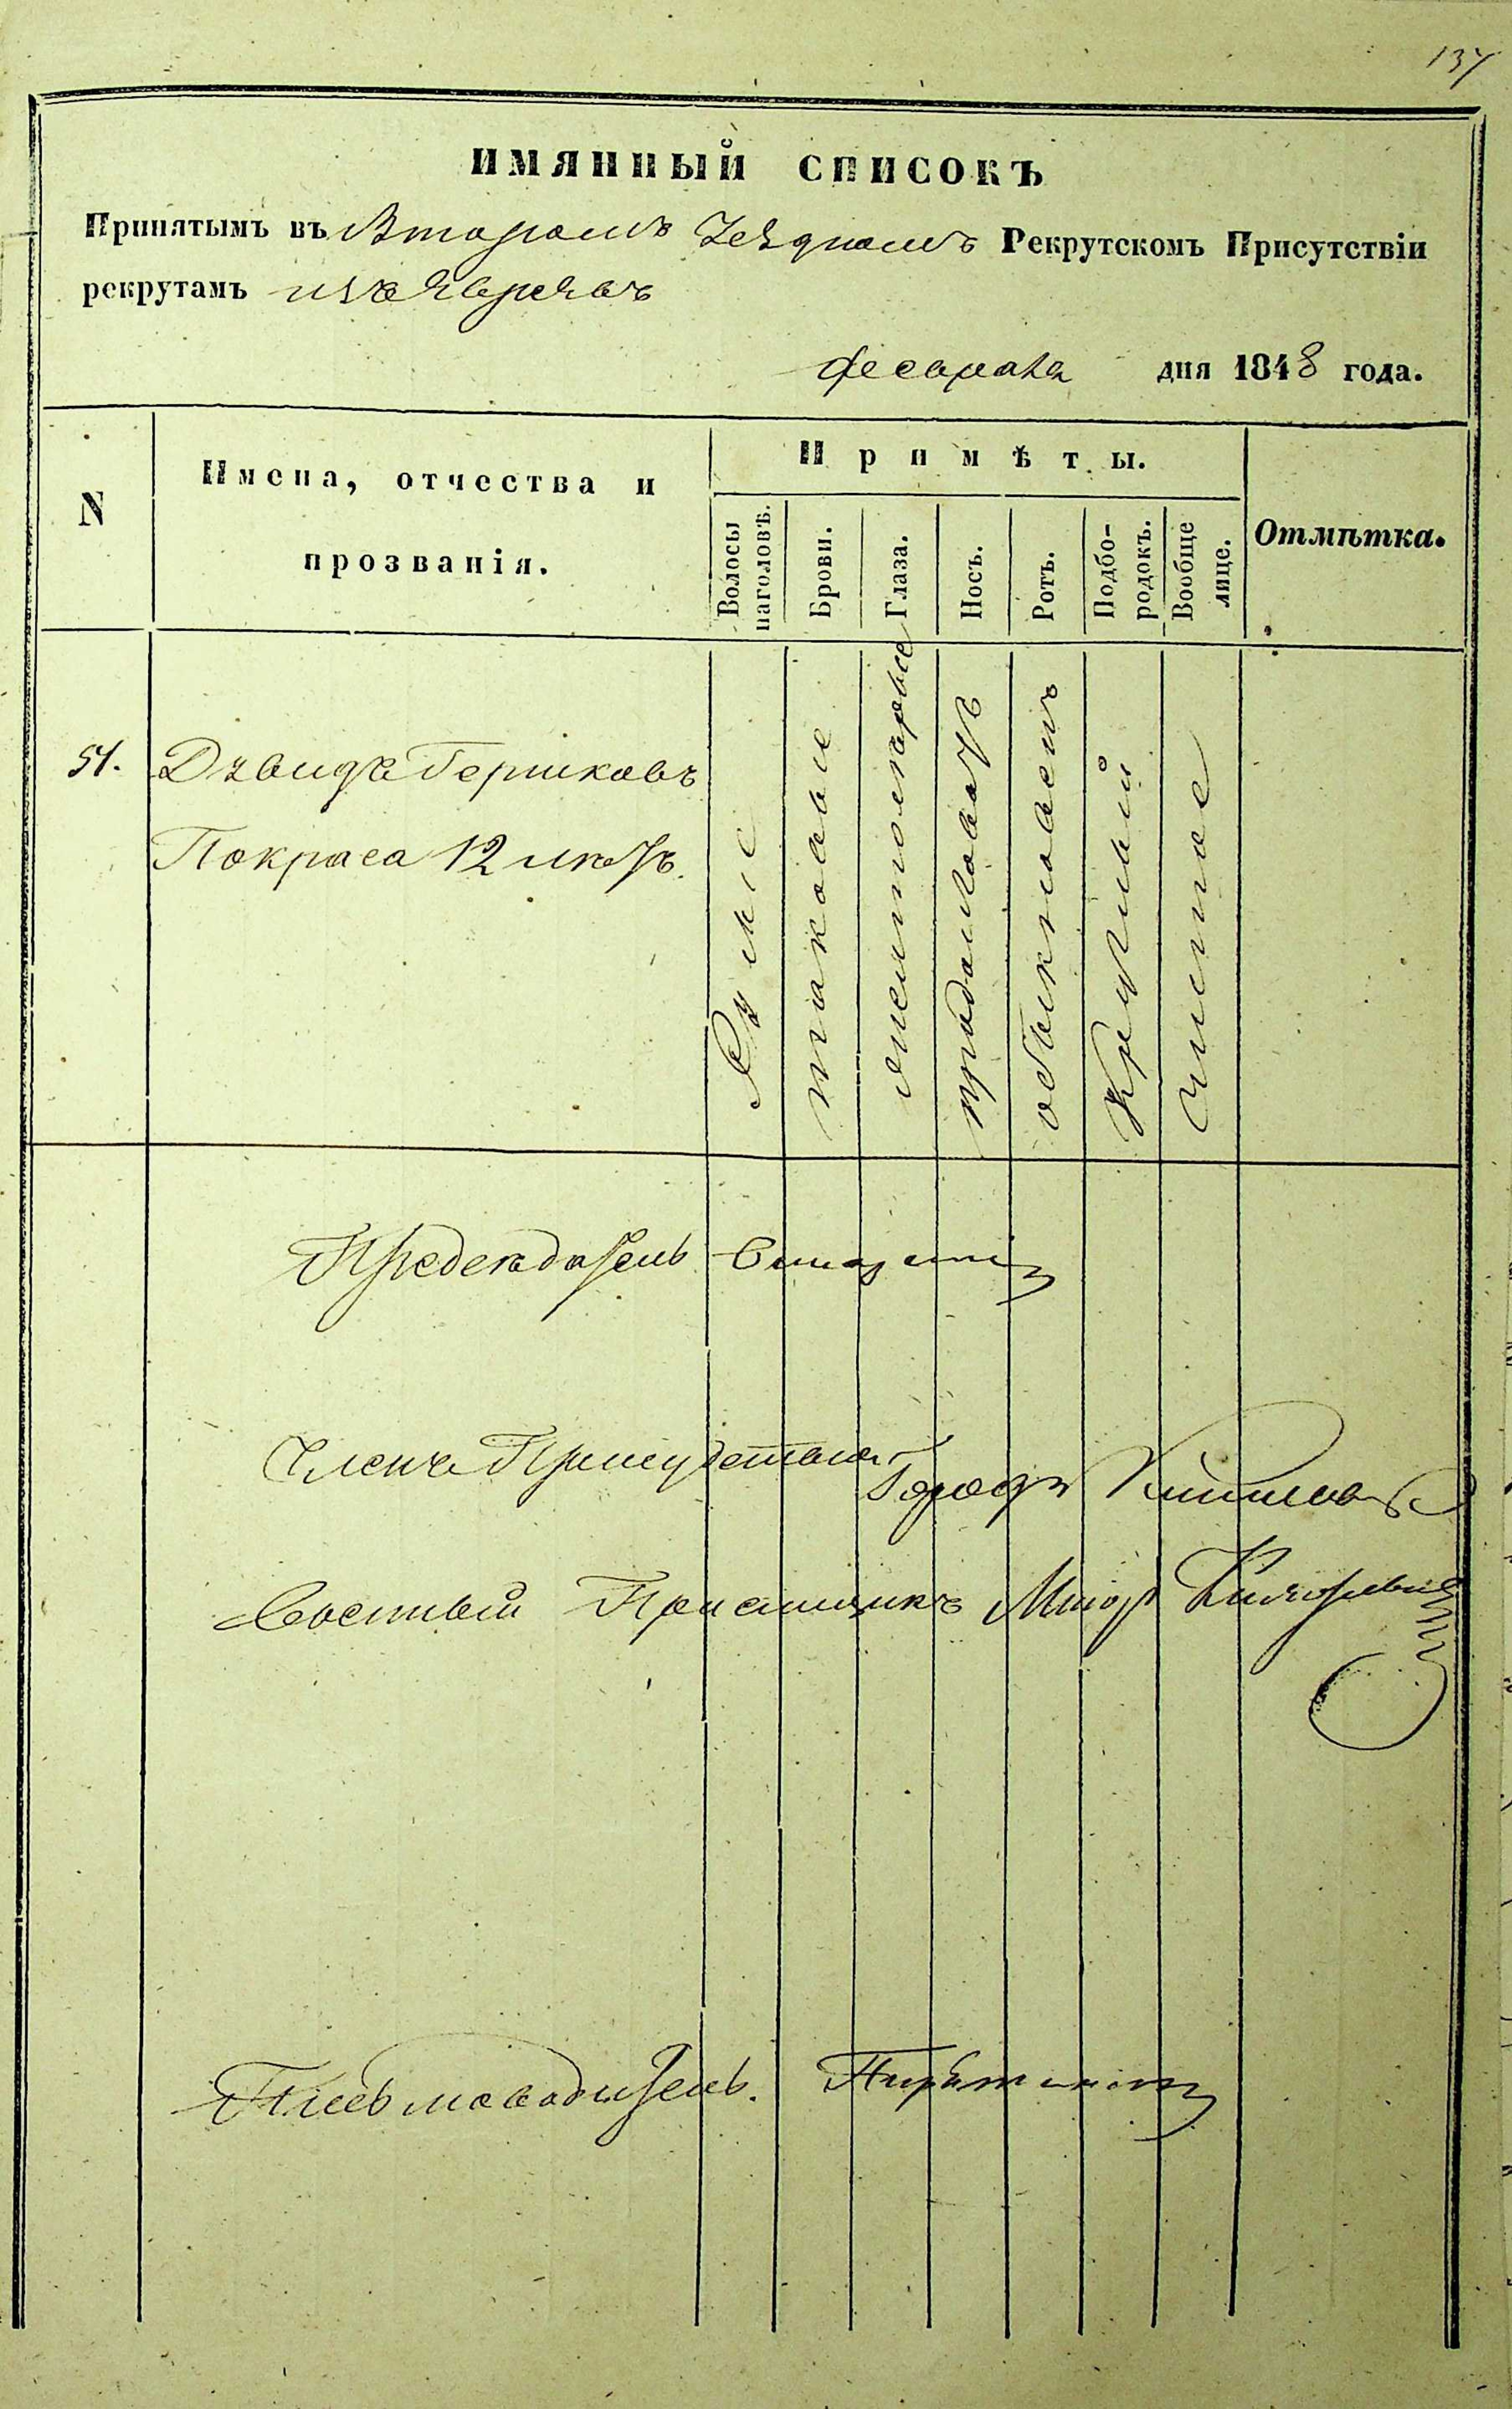 137
ИМЯННЫЙ СПИСОКЪ
Принятымъ въ Второмъ Уездномъ Рекрутскомъ Присутствіи
рекрутамъ изъ Евреевъ
февраля дня 1848 года.
N
Имена, отчества и
прозванія.
Примѣты.
Волосы
наголовѣ.
Брови.
Глаза.
Носъ.
Ротъ.
Подбо-
родокъ.
Вообще
лице.
Отмѣтка.
51.
Давидъ Гершковъ
Покраса 12 лѣтъ.
Русые
таковые
желтокарые
продолговатъ
обыкновенъ
Круглый
чистое
Председатель
Члены Присутствія
Военный Пріемщикъ Маіоръ
Письмоводитель.